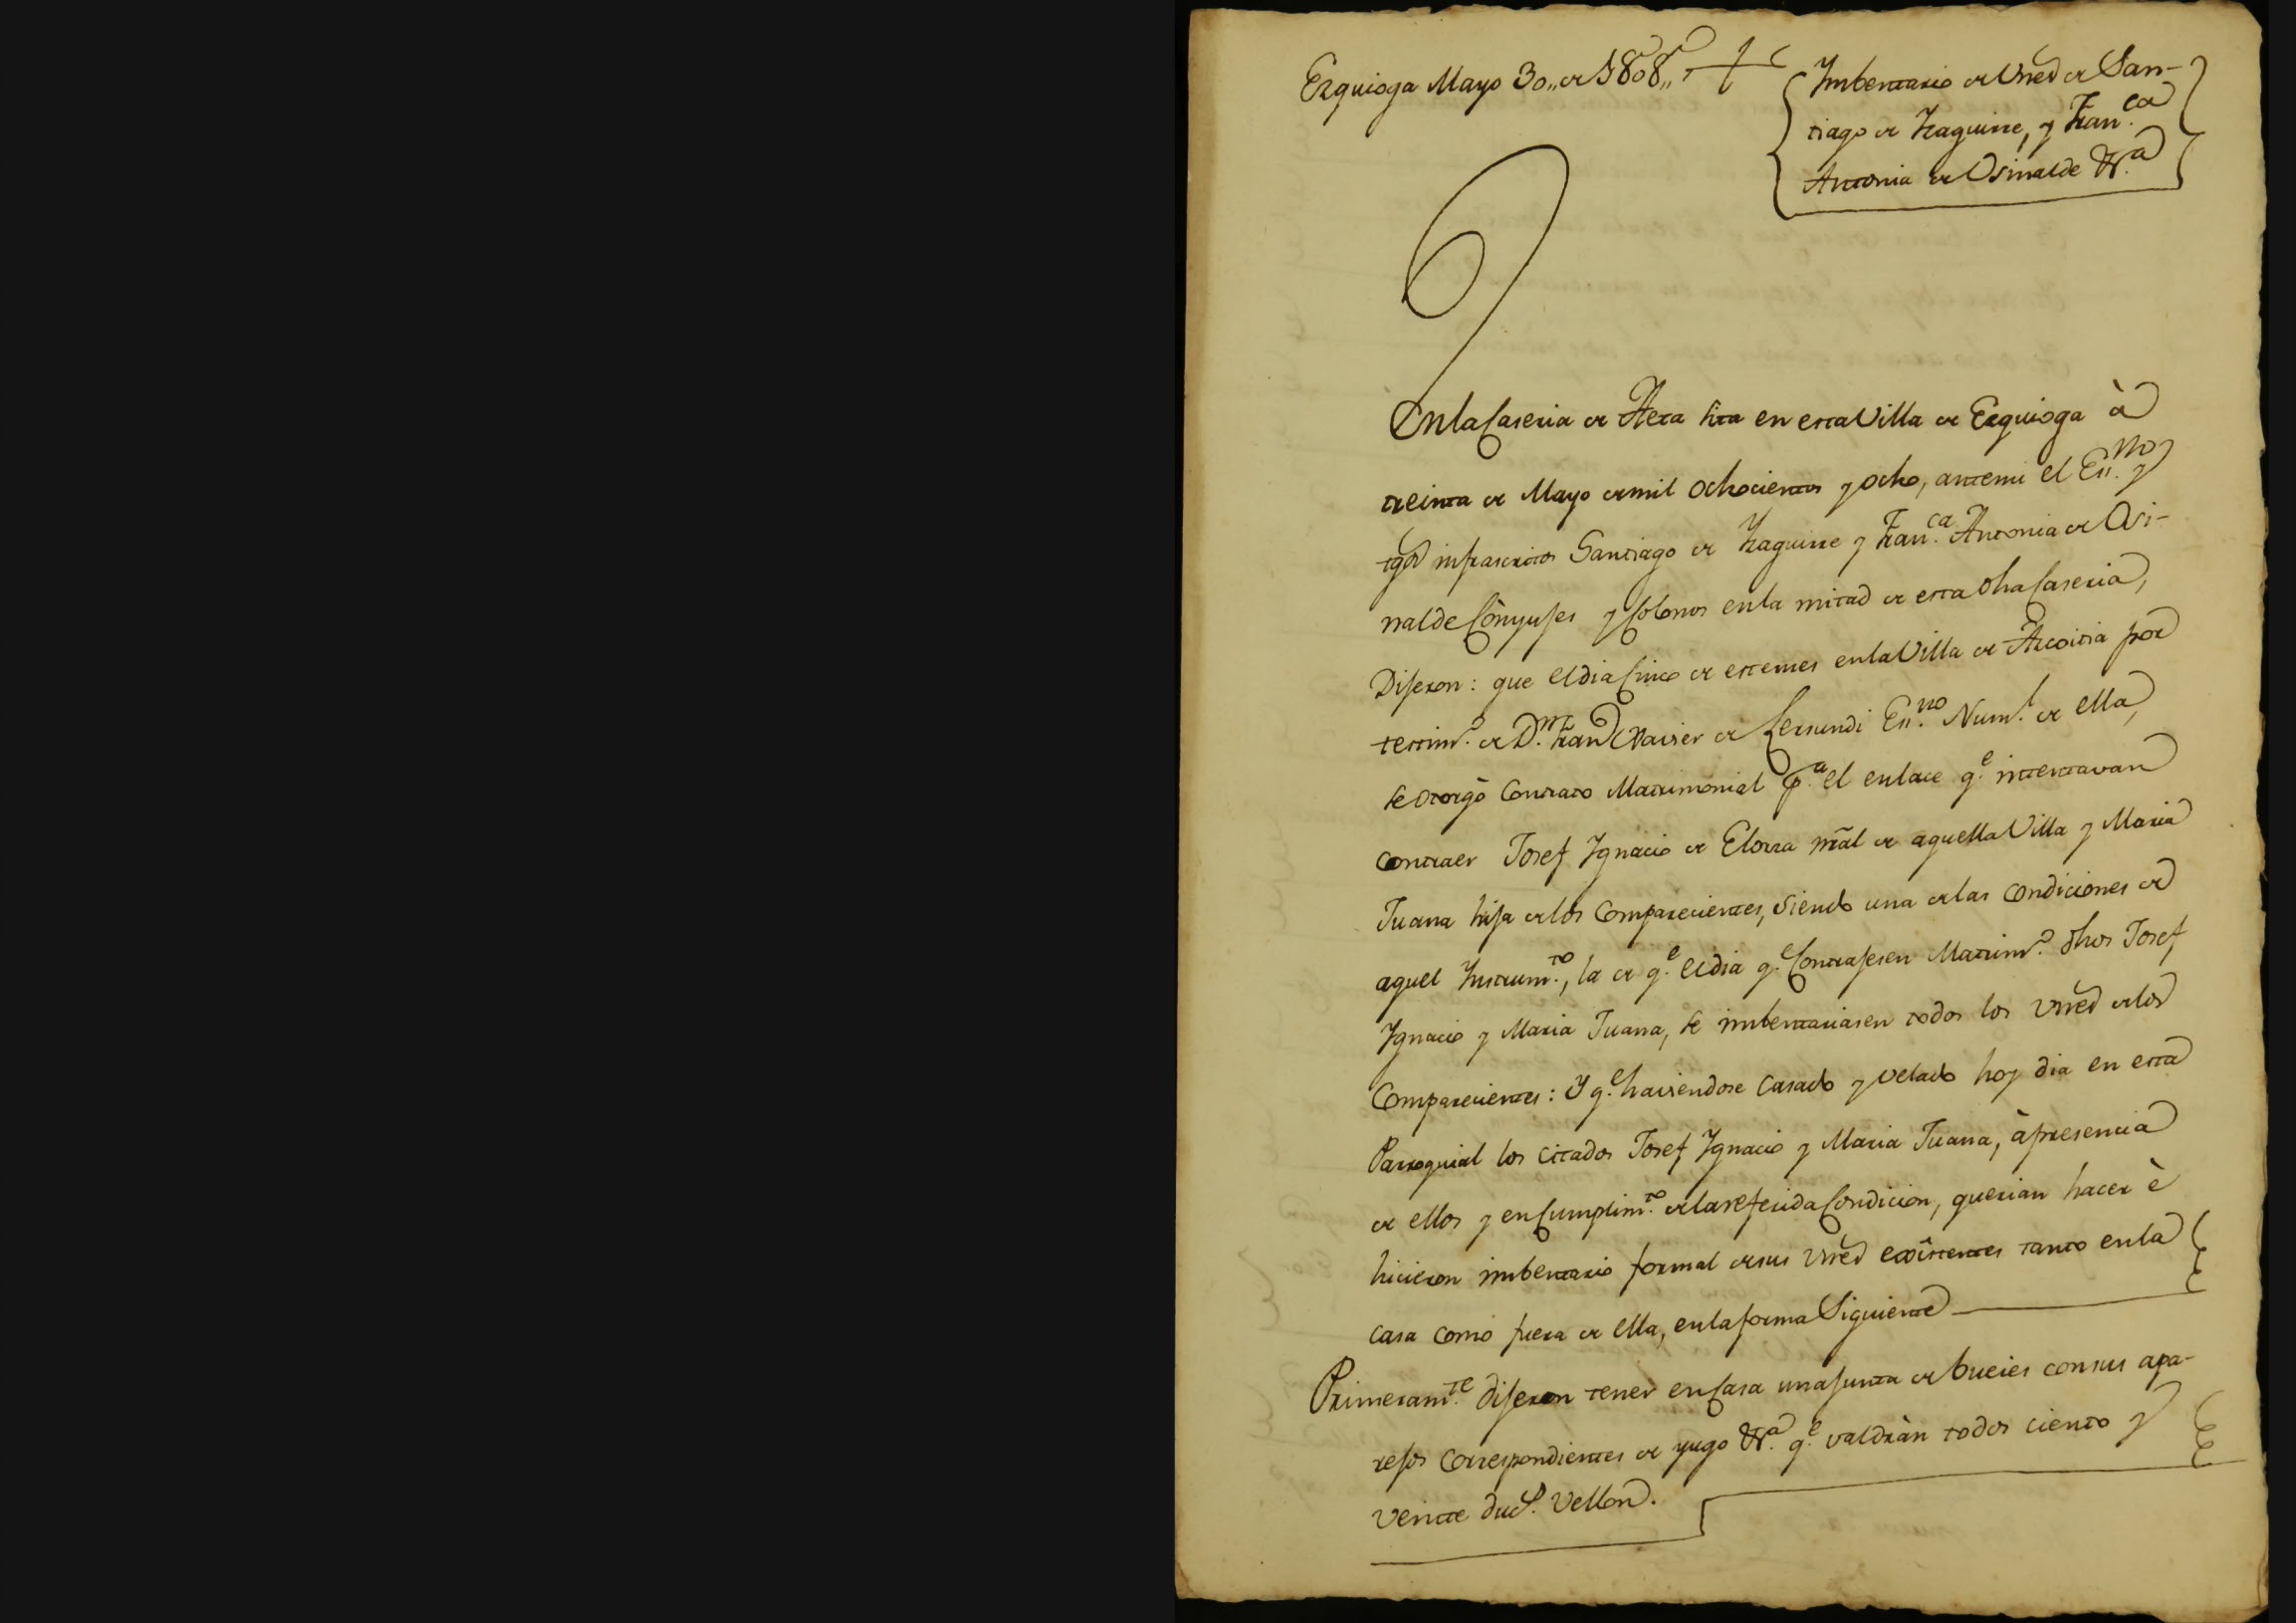 Ezquioga Mayo 30,, de 1808,,
Imbentario de Vnes de San-
tiago de Yzaguirre, y Fran.ca
Antonia de Osinalde &.a
En la Caseria de sita en esta Villa de Ezquioga à
treinta de Mayo de mil ochocientos y ocho, ante mi el Es.no y
tgos infrascritos Santiago de Yzaguirre y Fran.ca Antonia de Osi-
nalde Cònyujes y Colonos en la mitad de esta dha Caseria,
Dijeron: que el dia Cinco de este mes en la Villa de Azcoitia por
testim.o de D.n Fran.co Xavier de Lersundi Es.no Num.l de ella,
se otorgò Contrato Matrimonial p.a el enlace q.e intentavan
contraer Josef Ygnacio de Elorza nral de aquella Villa y Maria
Juana hija de los Comparecientes, siendo una de las condiciones de
aquel Ynstrum.to, la de q.e el dia q.e Contrajesen Matrim.o dhos Josef
Ygnacio y Maria Juana, se imbentariasen todos los vnes de los
Comparecientes: Y q.e haviendose casado y velado hoy dia en esta
Parroquial los citados Josef Ygnacio y Maria Juana, à presencia
de ellos y en Cumplim.to de la referida Condicion, querian hacer è
hicieron imbentario formal de sus vnes exîstentes tanto en la
casa como fuera de ella, en la forma Siguiente
Primeram.te dijeron tener en Casa una junta de bueies con sus apa-
rejos Correspondientes de yugo &.a q.e valdràn todos ciento y
veinte duc.s vellon.